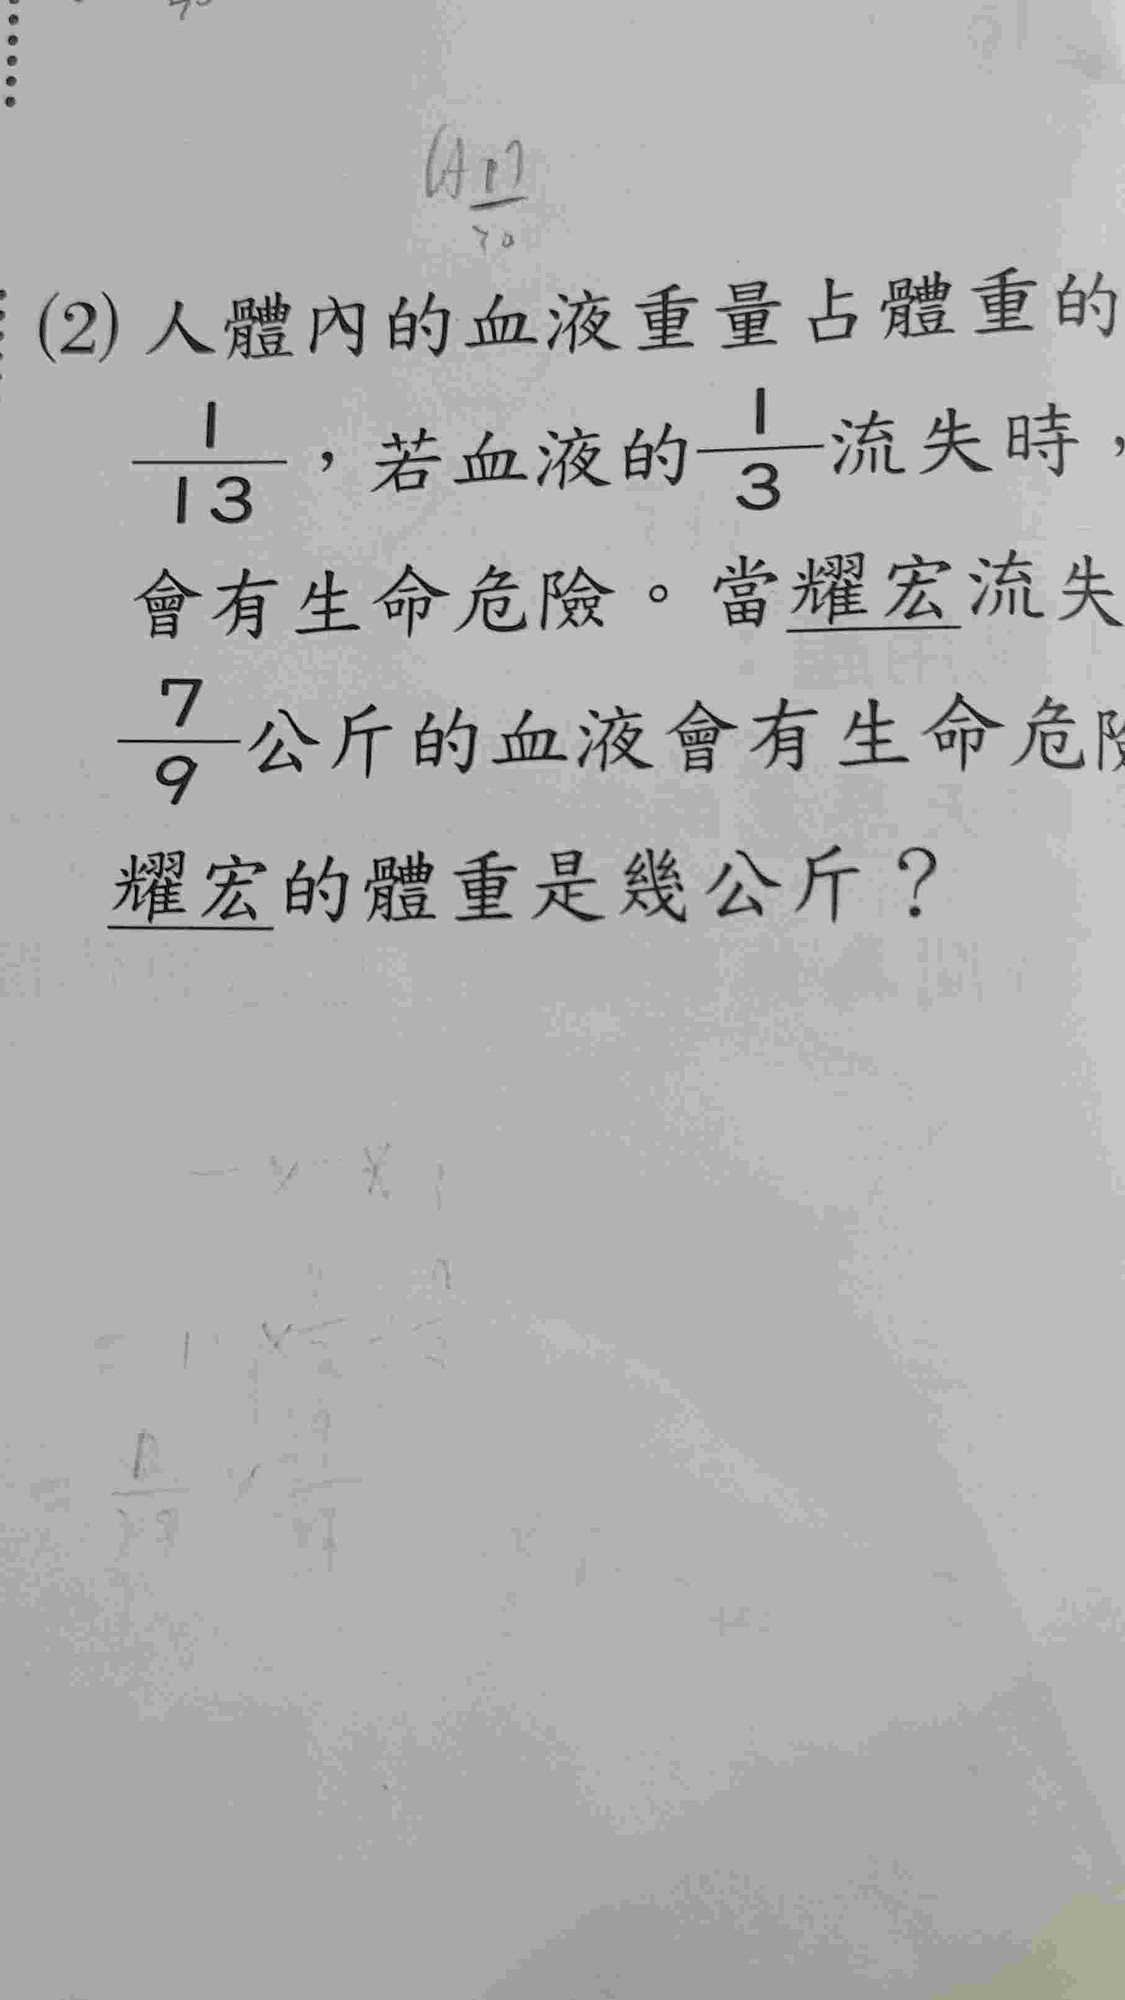 (2) 人體內的血液重量占體重的
1/13，若血液的1/3流失時，
會有生命危險。當耀宏流失
7/9公斤的血液會有生命危險
耀宏的體重是幾公斤？